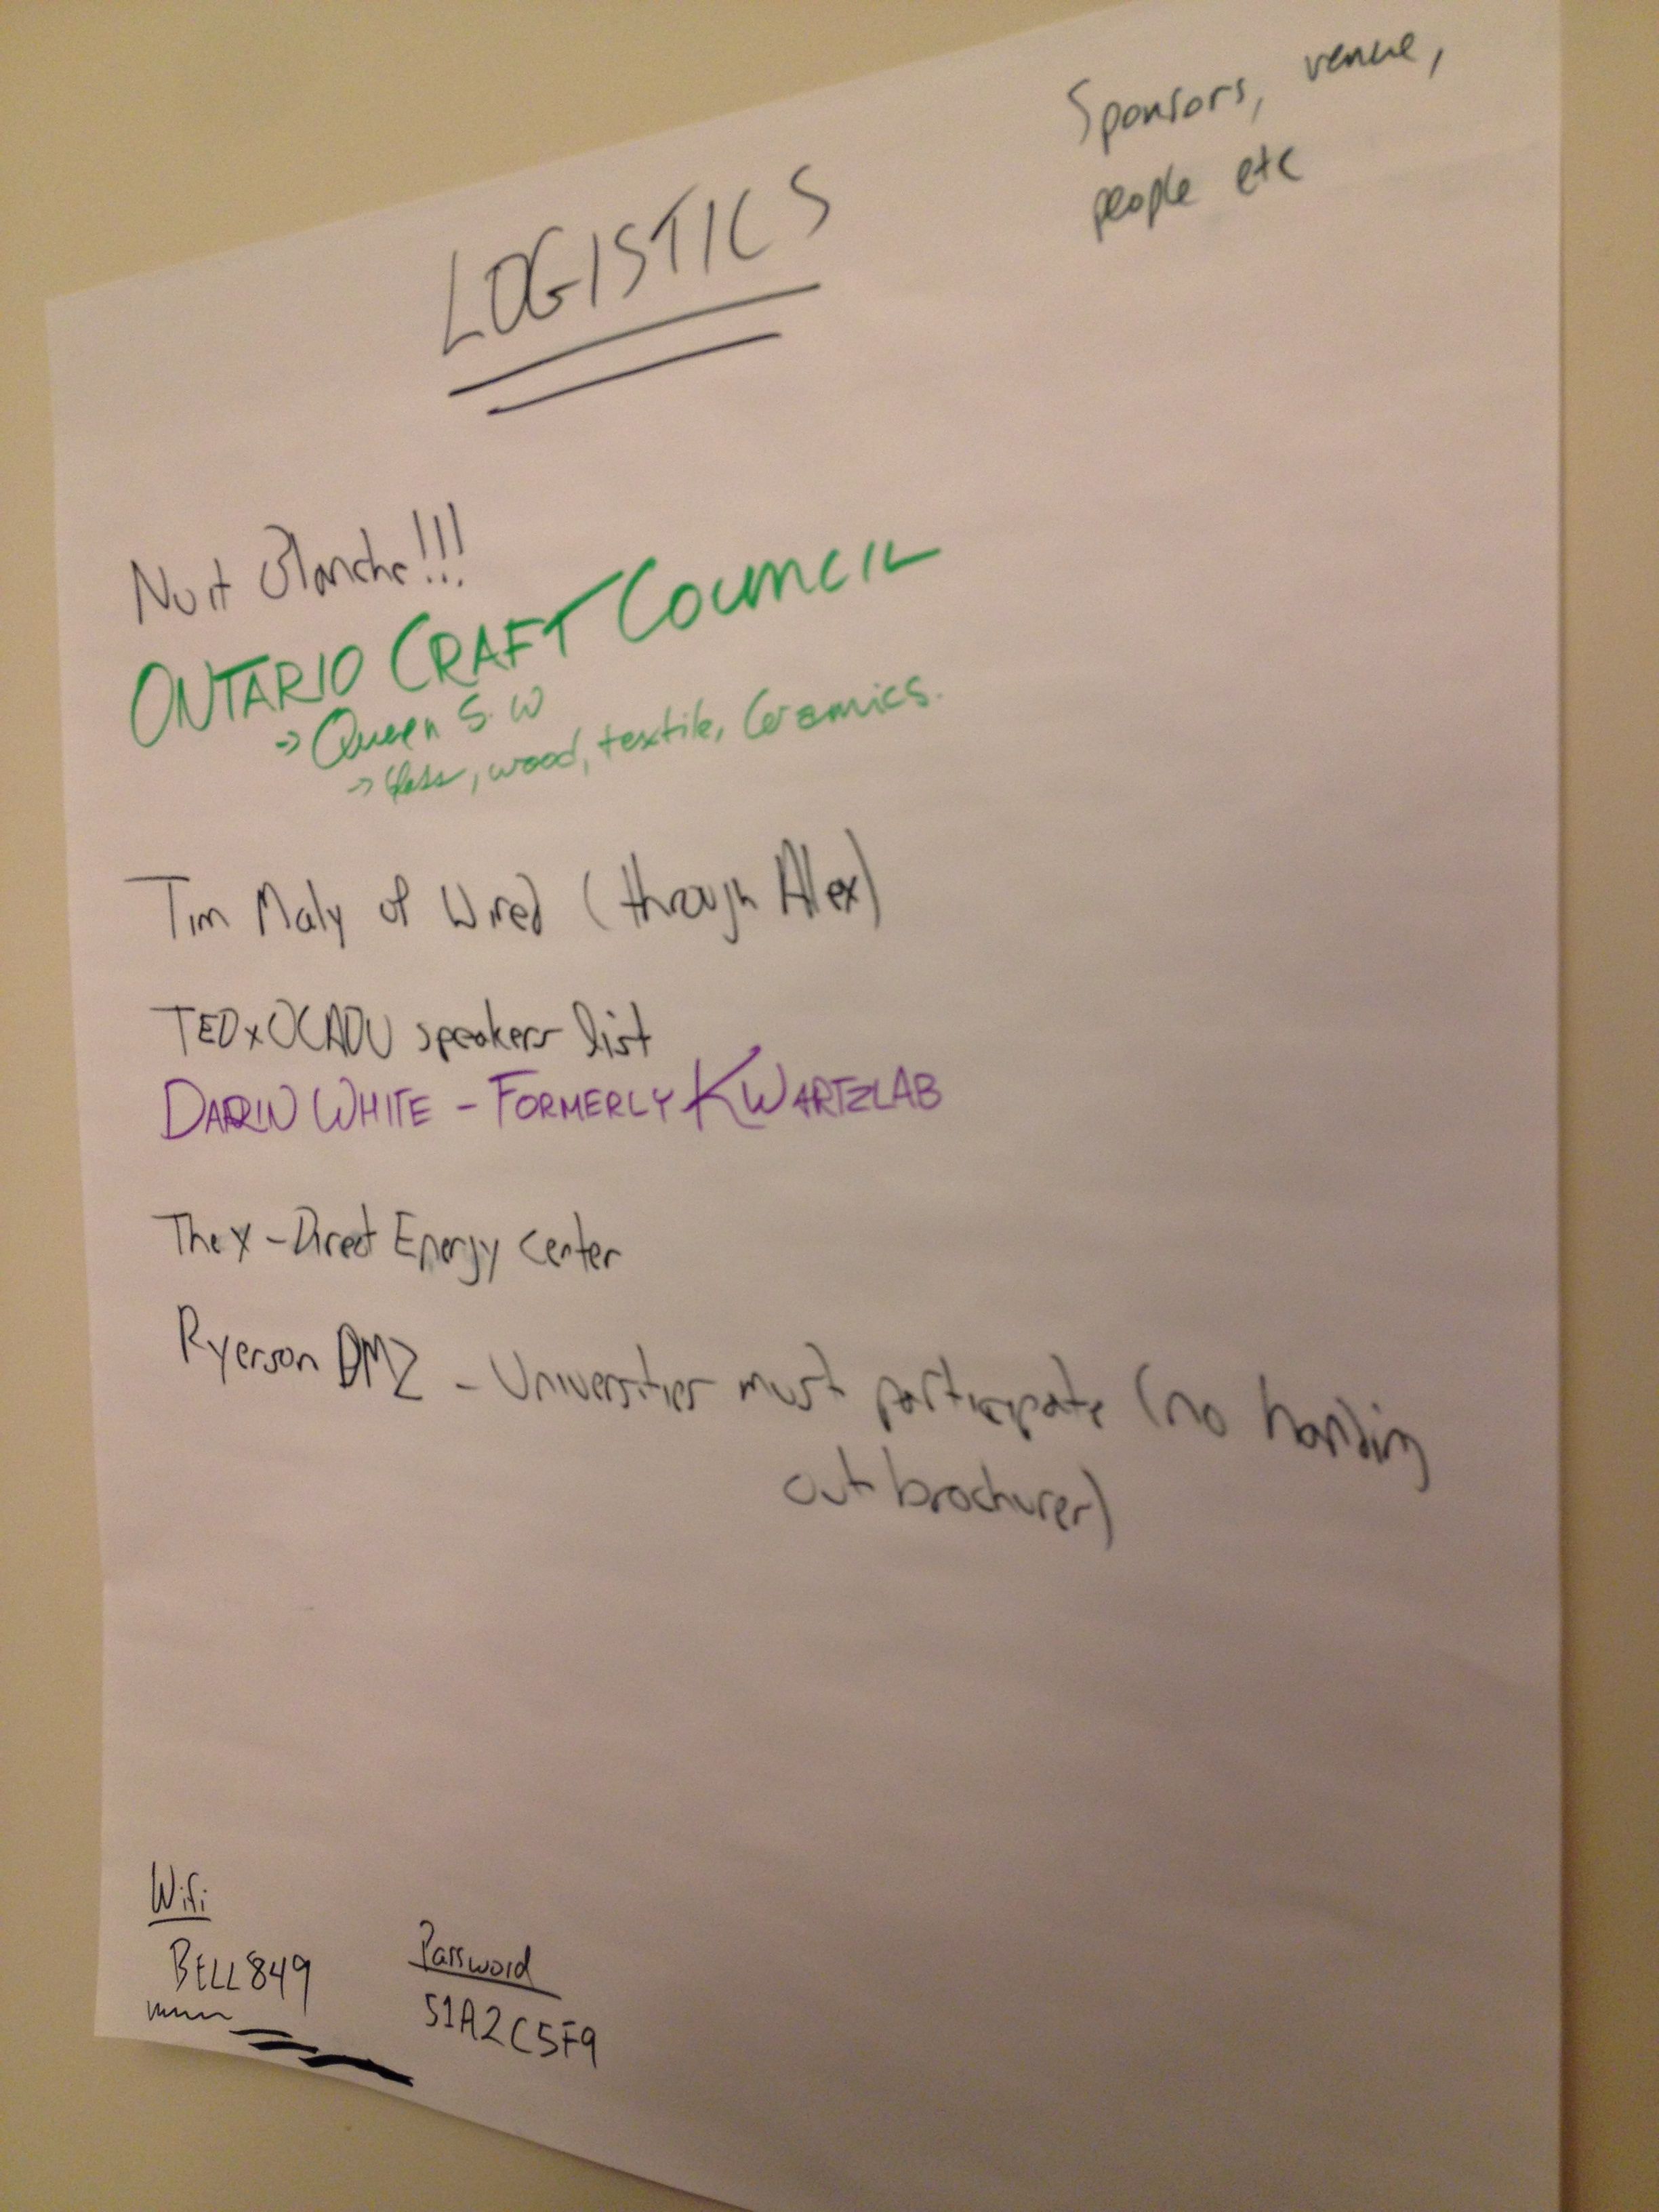 Sponsors, venue,
people etc
LOGISTICS
Nuit Blanche!!!
ONTARIO CRAFT COUNCIL
→ Queen S. W
→ Glass, wood, textile, Ceramics.
Tim Maly of Wired (through Alex)
TEDxOCADU speakers list
DARIN WHITE - FORMERLY KWARTZLAB
The X - Direct Energy Center
Ryerson DMZ - Universities must participate (no handing
out brochures)
Wifi
BELL849
Password
51A2C5F9